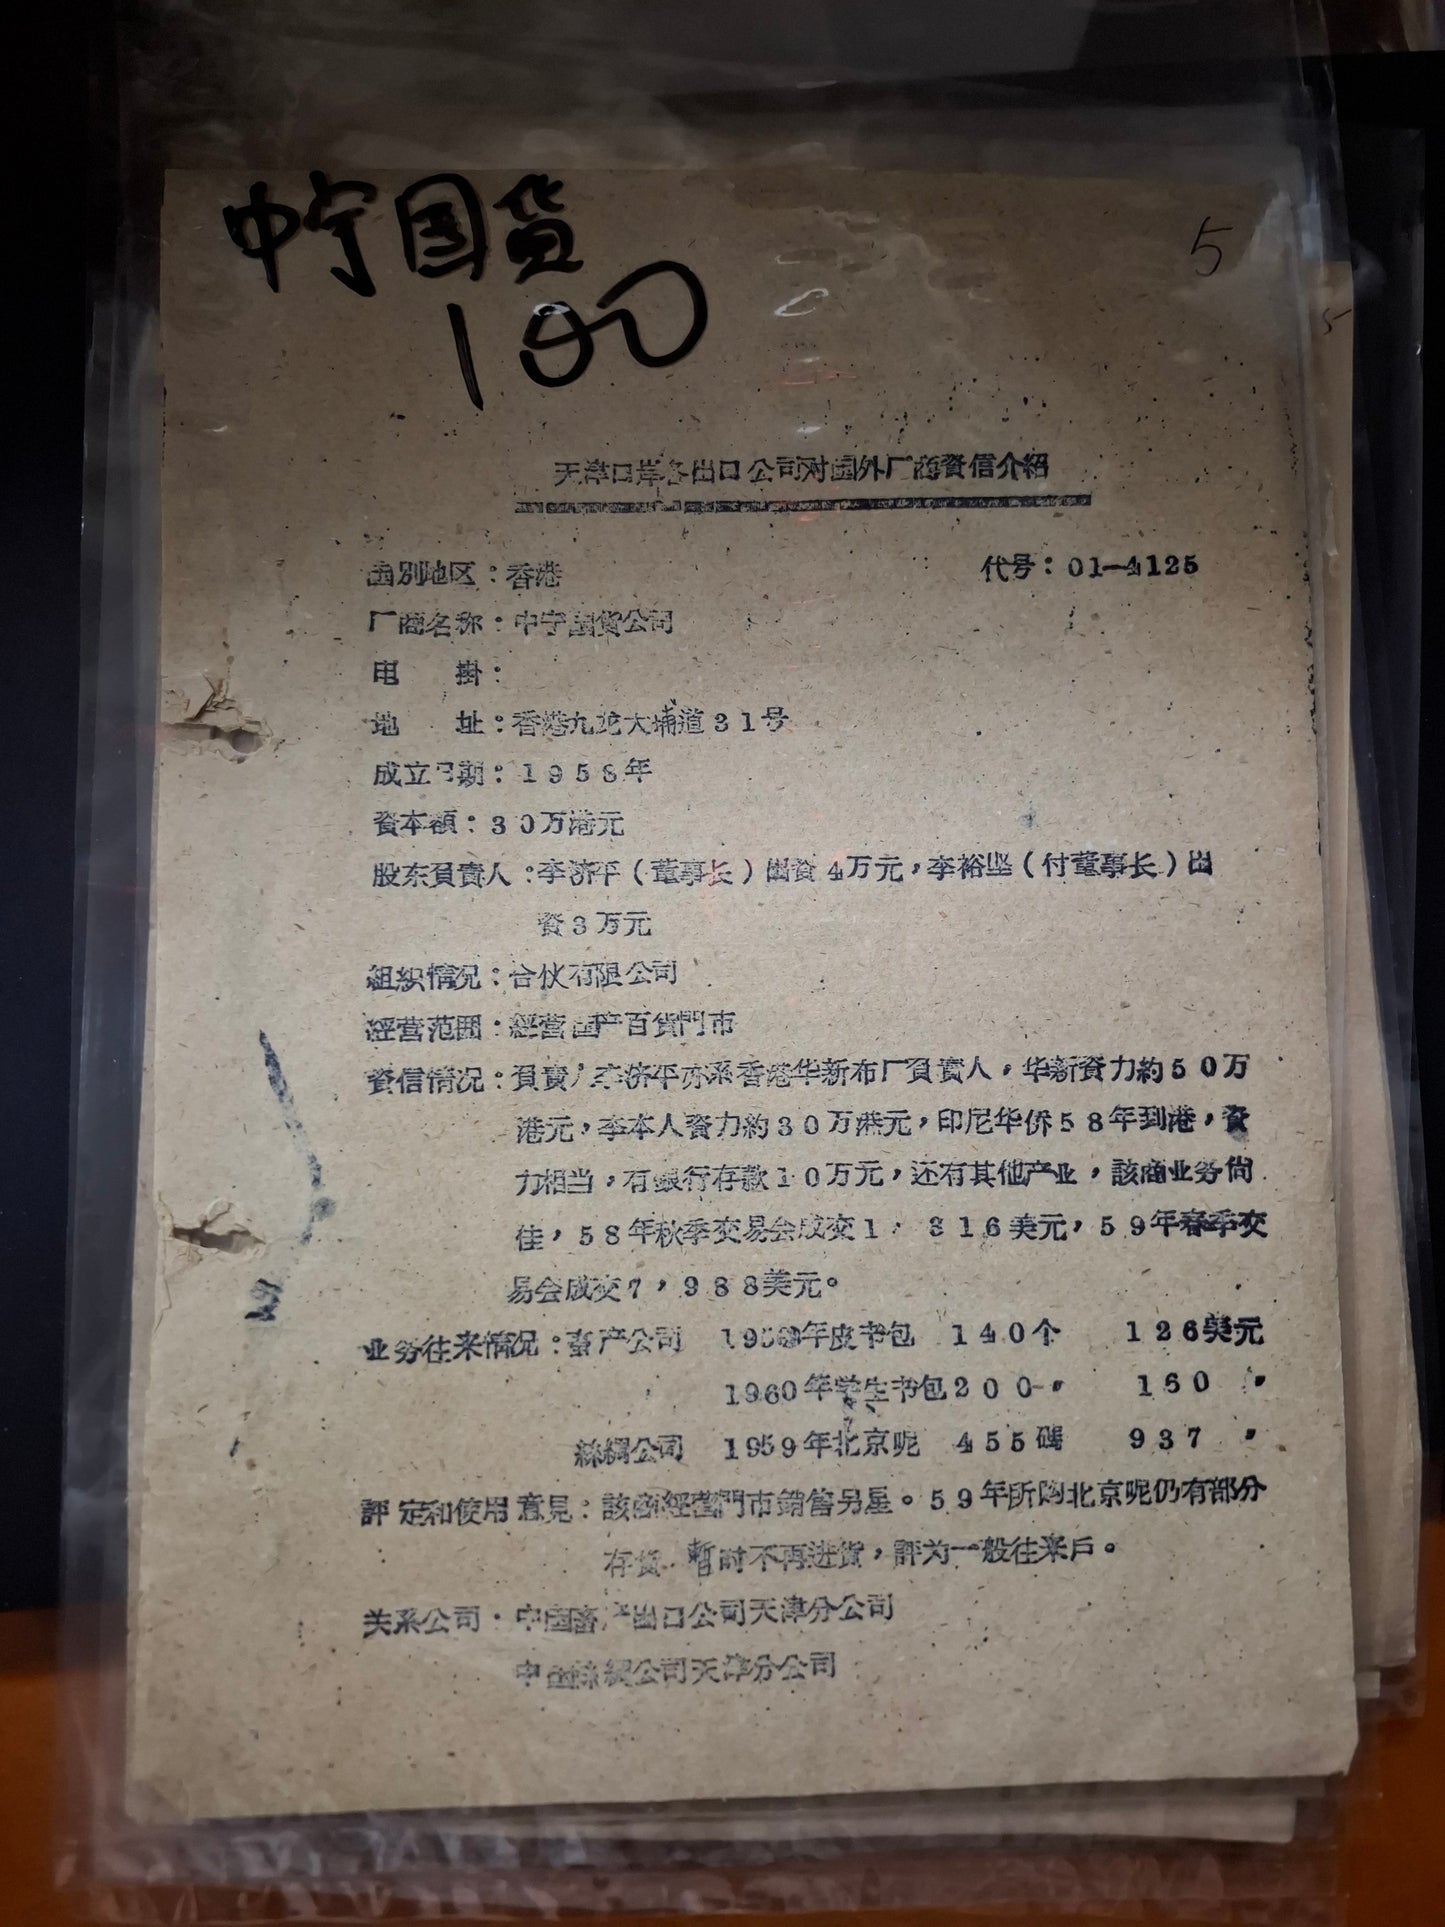 中宁国货
5
100
5
天津口岸各出口公司对国外厂商資信介紹
国別地区：香港 代号：01—4125
厂商名称：中宁国货公司
电 掛：
地 址：香港九龙大埔道31号
成立日期：1958年
資本額：30万港元
股东負責人：李济平（董事长）出資4万元，李裕坚（付董事长）出
資3万元
組织情况：合伙有限公司
經营范囲：經营国产百货門市
資信情况：負責人李济平亦系香港华新布厂負責人，华新資力約50万
港元，李本人資力約30万港元，印尼华侨58年到港，資
力相当，有銀行存款10万元，还有其他产业，該商业务尙
佳，58年秋季交易会成交1，316美元，59年春季交
易会成交7，988美元。
业务往来情况：畜产公司 1959年皮书包 140个 126美元
1960年学生书包200〃 160〃
絲綢公司 1959年北京呢 455碼 937〃
評定和使用意見：該商經营門市銷售另星。59年所购北京呢仍有部分
存货 暫时不再进货，評为一般往来戶。
关系公司：中国畜产出口公司天津分公司
中国絲綢公司天津分公司